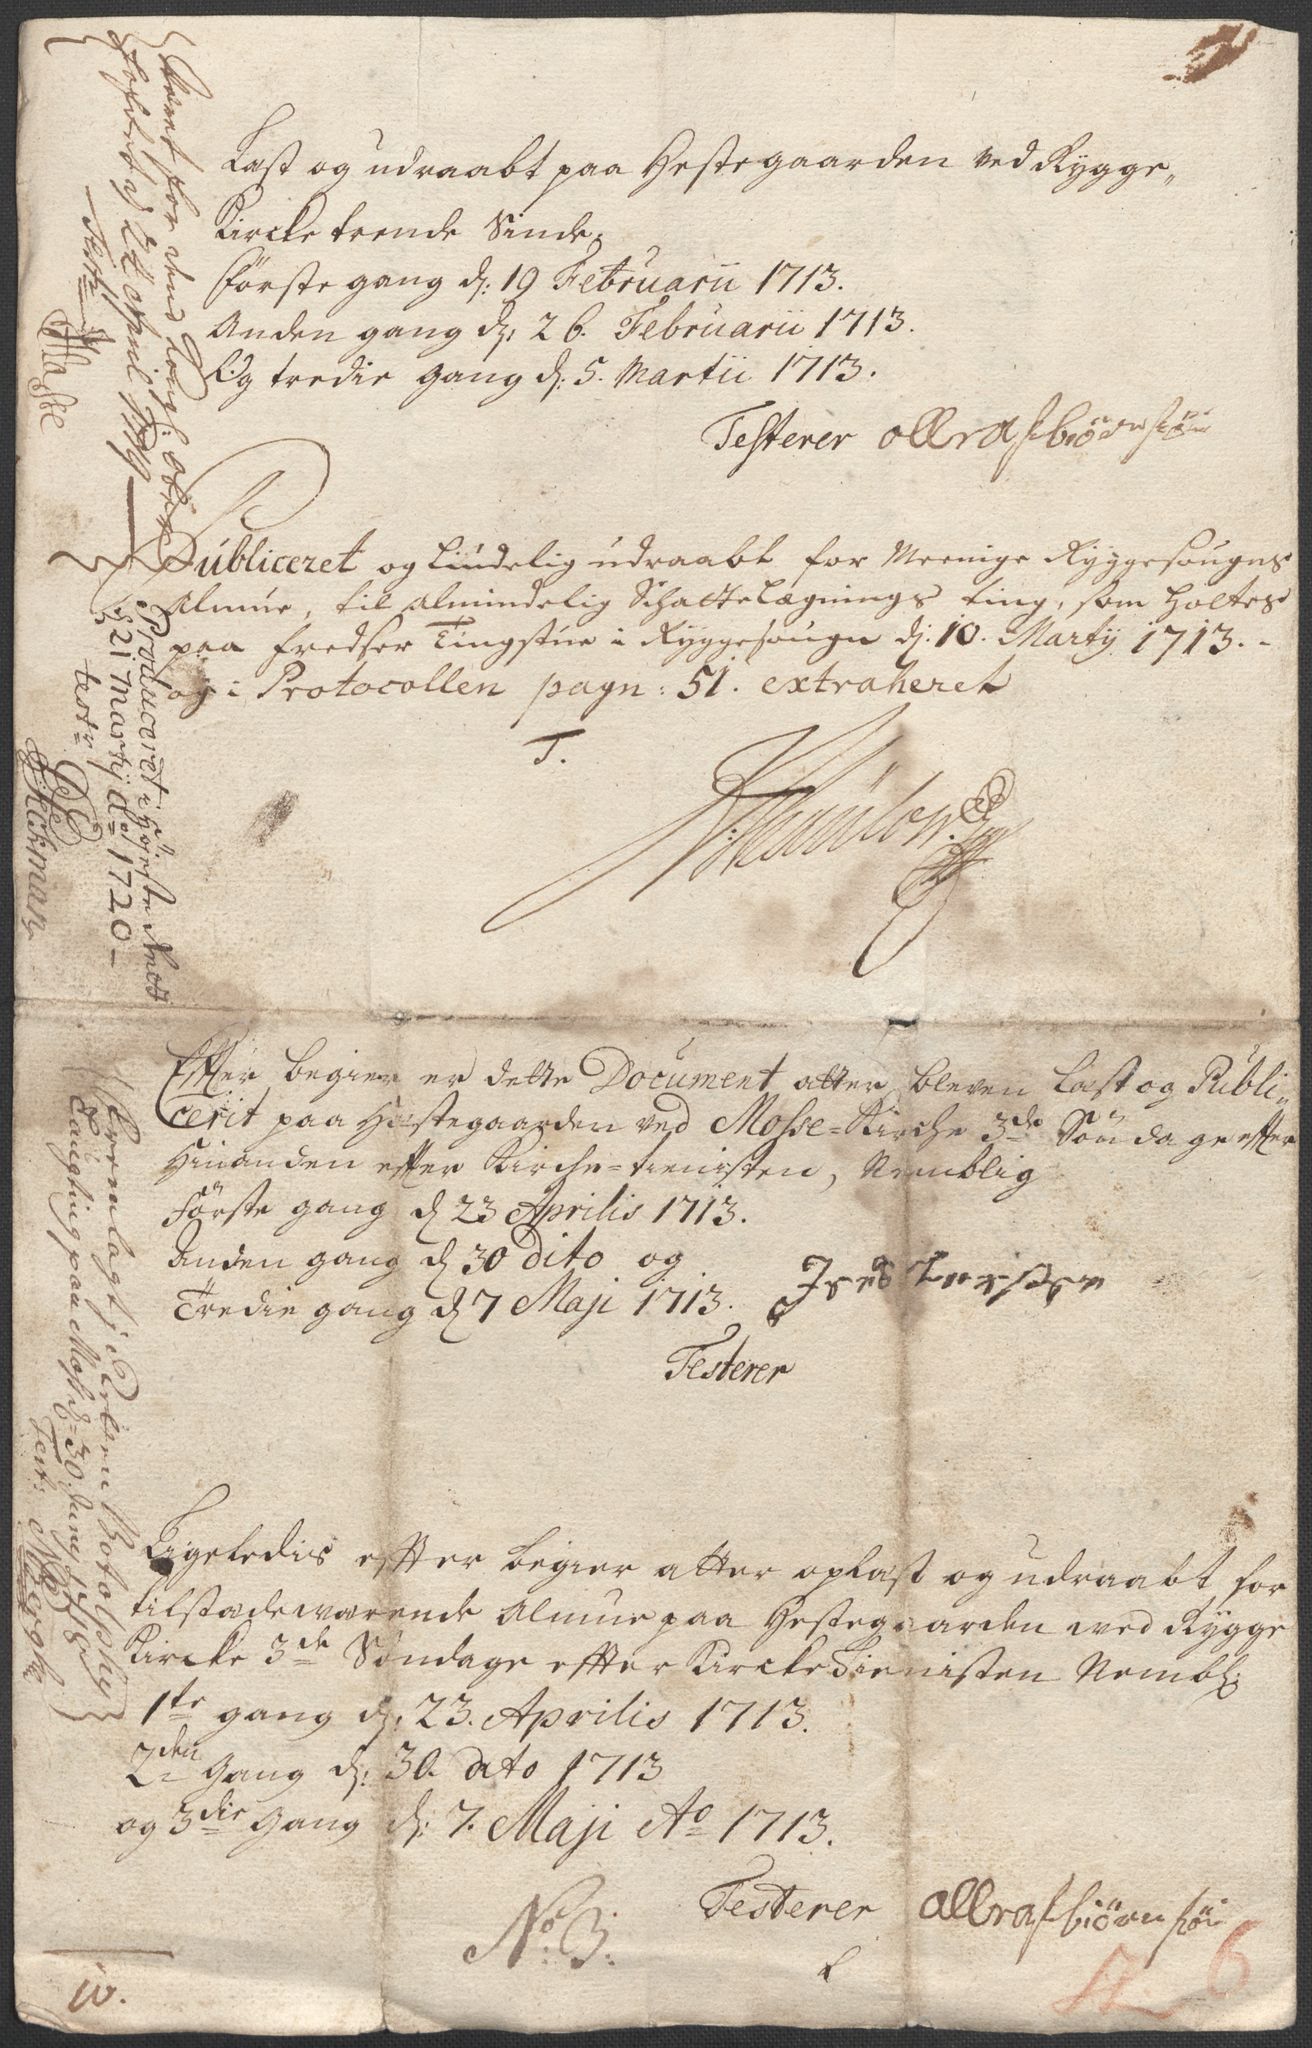 Læst og udraabt paa Hestegaarden ved Rygge,,
Kircke trende Sinde,
första gang d: 19 Februarii 1713.
Anden gang d: 26. Februarii 1713.
Og tredie gang d: 5. Martii 1713.
Testerer
Publiceret og Liudelig udraabt for Meenige Ryggesougns
Almue, til almindelig Schattelægnings ting, som holtes
paa fredser Tingstue i Ryggesougn d: 10. Martij 1713.-
og i Protocollen pagn: 51. extraheret
T.
Effter begier er dette Document atter bleven Læst og Publi,,
cerit paa Hestegaarden ved Mosse=Kirche 3de Söndage effter
Hinanden effter Kirche=tienisten, Nemblig
Förste gang d 23 Aprilis 1713.
Anden gang d 30 dito og
Tredie gang d 7 Maji 1713.
Testerer
Ligeledis effter begier atter oplæst og udraabt for
tilstædewærende Almue paa Hestegaarden wed Rygge
Kircke 3de Söndage effter Kircketienisten Nembl:
1te gang d: 23. Aprilis 1713.
2den Gang d: 30. dito 1713
og 3die Gang d: 7. Maji Ao 1713.
Testerer
No: 3:
10.
6
Læst for
d 22 April
Test
Produceret i Höjeste Rett
d 21 Martij Ao 1720-
testr
Fremlagt i
Laugting paa Moss d= 30. Junij
Test: